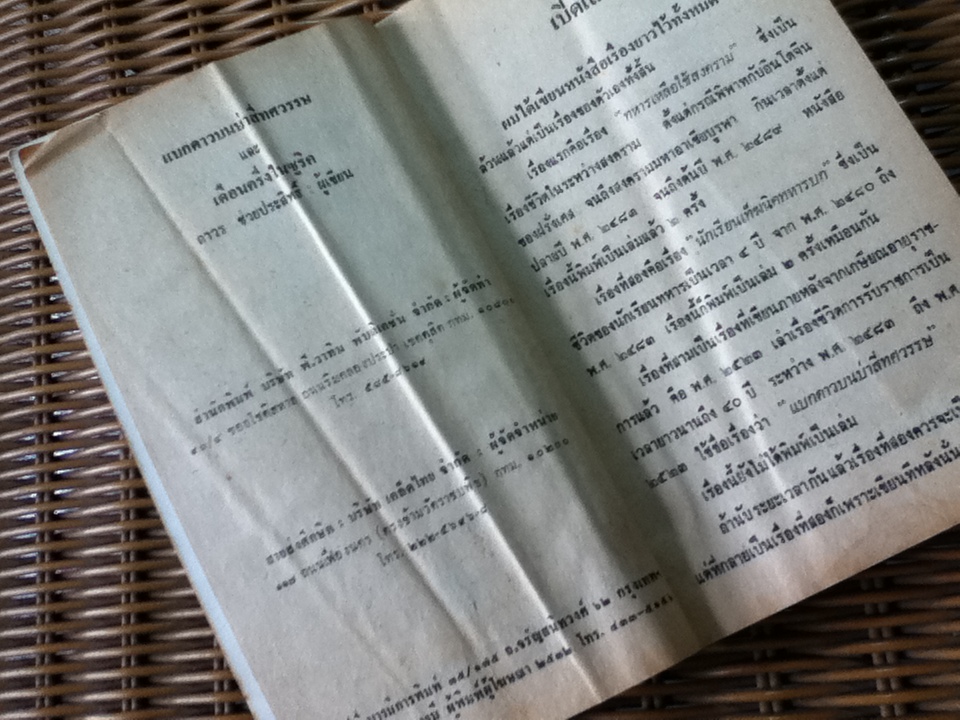 แบกดาวบนบ่าสี่ทศวรรษ
และ
เดือนครึ่งในพูริค
ถาวร ช่วยประสิทธิ์ : ผู้เขียน
สำนักพิมพ์ บริษัท พี.วาทิน พับลิเคชั่น จำกัด : ผู้จัดทำ
โทร.
สายส่งศึกษิต : บริษัท เคล็ดไทย จำกัด : ผู้จัดจำหน่าย
๑๑๗ ถนนเฟื่องนคร (ตรงข้ามวัดราชบพิธ) กทม. ๑๐๒๐๐
โทร. ๒๒๒-
การพิมพ์ ๓๕/๑๙๕ ถ.จรัญสนิทวงศ์ ๖๒ กรุงเทพ-
ผู้พิมพ์ผู้โฆษณา ๒๕๓๒ โทร. ๔๓๓-
ผมได้เขียนหนังสือเรื่องยาวไว้ทั้งหมด
ล้วนแล้วแต่เป็นเรื่องของตัวเองทั้งสิ้น
เรื่องแรกคือเรื่อง "ทหารเหลือใช้สงคราม" ซึ่งเป็น
เรื่องชีวิตในระหว่างสงคราม ตั้งแต่กรณีพิพาทกับอินโดจีน
ของฝรั่งเศส จนถึงสงครามมหาอาเซียบูรพา กินเวลาตั้งแต่
ปลายปี พ.ศ. ๒๔๘๓ จนถึงต้นปี พ.ศ. ๒๔๘๙ หนังสือ
เรื่องนี้พิมพ์เป็นเล่มแล้ว ๒ ครั้ง
เรื่องที่สองคือเรื่อง "นักเรียนเท็ฆนิคทหารบก" ซึ่งเป็น
ชีวิตของนักเรียนทหารเป็นเวลา ๔ ปี จาก พ.ศ. ๒๔๘๐ ถึง
พ.ศ. ๒๔๘๓ เรื่องนี้ก็พิมพ์เป็นเล่ม ๒ ครั้งเหมือนกัน
เรื่องที่สามเป็นเรื่องที่เขียนภายหลังจากเกษียณอายุราช-
การแล้ว คือ พ.ศ. ๒๕๒๓ เล่าเรื่องชีวิตการรับราชการเป็น
เวลายาวนานถึง ๔๐ ปี ระหว่าง พ.ศ. ๒๔๘๓ ถึง พ.ศ.
๒๕๒๓ ใช้ชื่อเรื่องว่า "แบกดาวบนบ่าสี่ทศวรรษ"
เรื่องนี้ยังไม่ได้พิมพ์เป็นเล่ม
ลำดับระยะเวลากันแล้วเรื่องที่สองควรจะเป็น
แต่ที่กลายเป็นเรื่องที่สองก็เพราะเขียนทีหลังนั้น